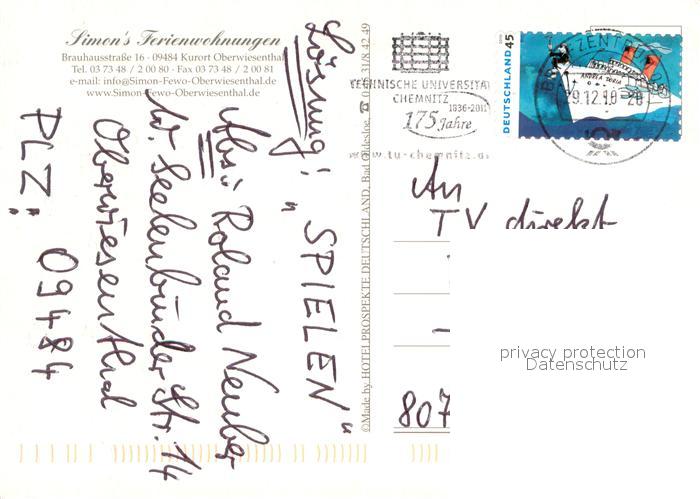 Simon's Ferienwohnungen
Brauhausstraße 16 · 09484 Kurort Oberwiesenthal
Tel. 03 73 48 / 2 00 80 · Fax 03 73 48 / 2 00 81
e-mail: info@Simon-Fewo-Oberwiesenthal.de
www.Simon-Fewo-Oberwiesenthal.de
Lösung:
"SPIELEN"
Abs.: Roland Neuber
W. Seelenbinder Str. 14
Oberwiesenthal
PLZ: 09484
©Made by HOTELPROSPEKTE-DEUTSCHLAND, Bad Oldesloe, 8 42 49
TECHNISCHE UNIVERSITÄT
CHEMNITZ
1836-2011
175 Jahre
www.tu-chemnitz.de
DEUTSCHLAND 45
BRIEFZENTRUM
9.12.10-20
An
TV direkt
807
privacy protection
Datenschutz